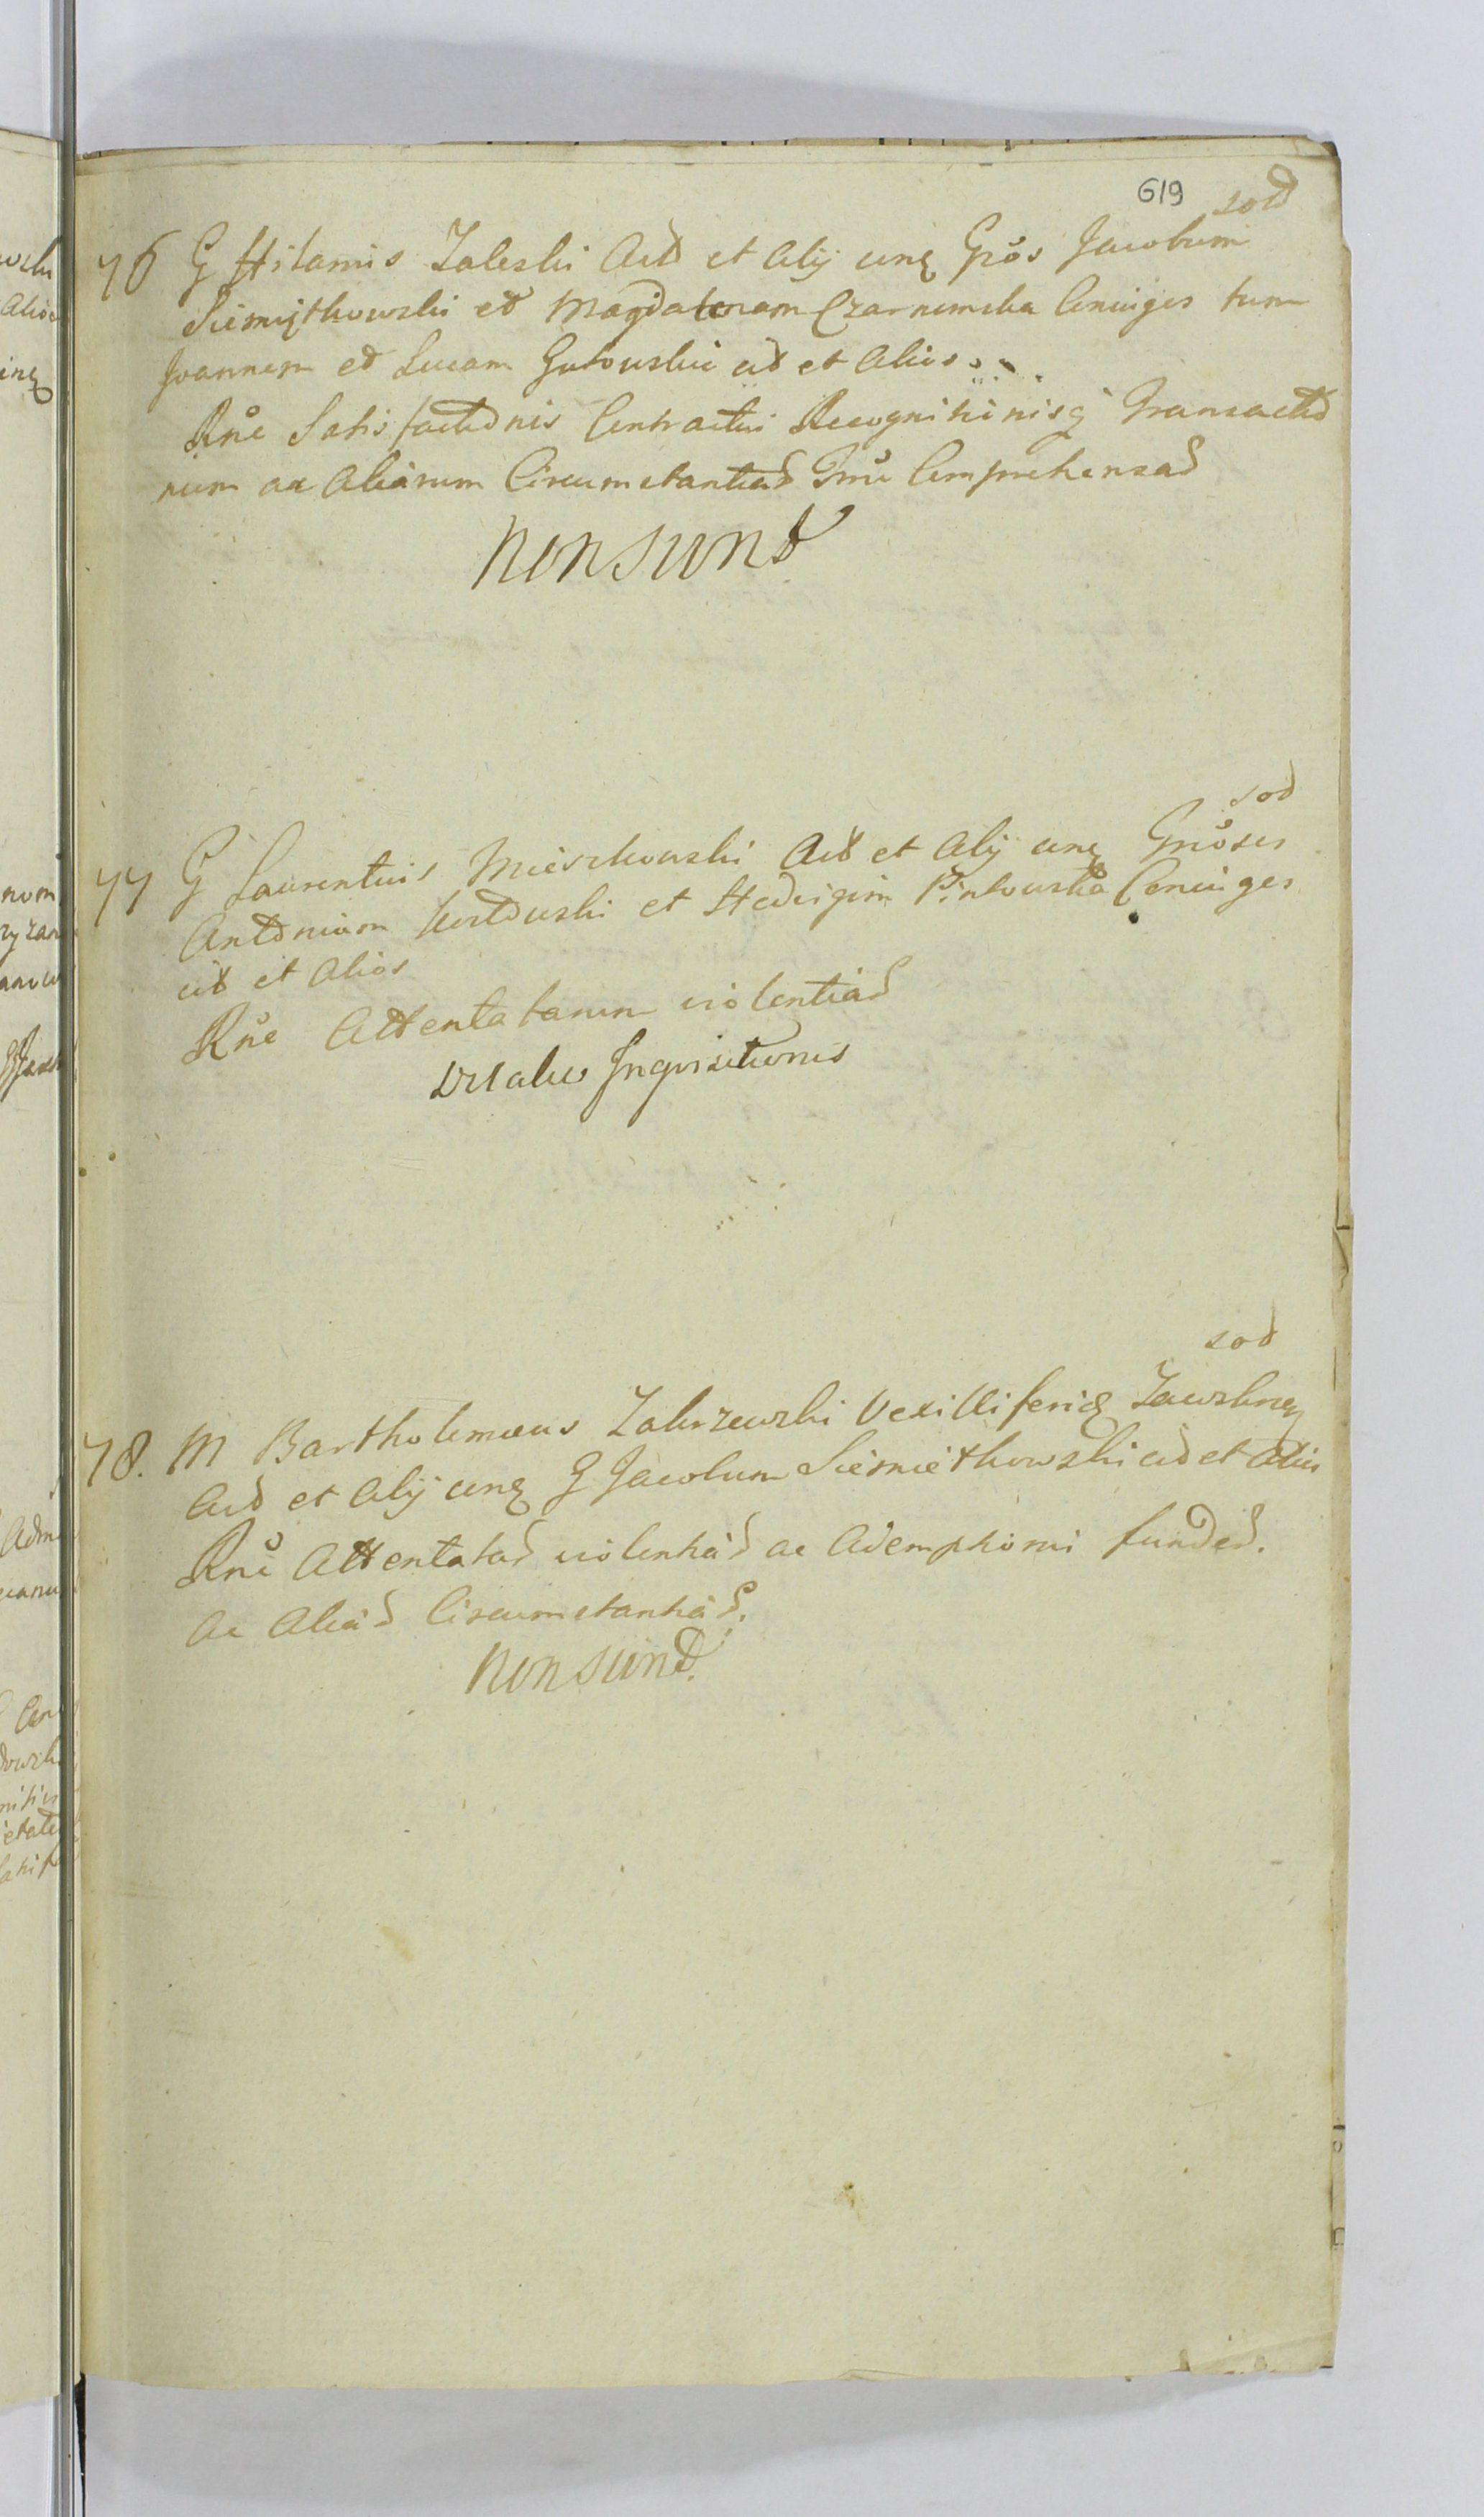 619 sod
76 G Hilarius Zaleski Act et Alij cinę Gr̊os Jacobum
Siemijtkowski et Magdalenam Czarnomska Coniuges tum
Joannem et Lucam Gutowski cit et Alios
Rňe Satisfactionis Contractui Recognitionisq Transactio
num ac Aliarum Circumstantiar Tmi Comprehensar
Non sunt
sod
77 G Laurentius Mieszkowski Act et Alij cinę Gr̊osos
Antonium et Hedvigim Pintowska Coniuges
cit et Alios
Rňe Attentatarum violentiar
Inqvisitionis
sod
78. M Bartholomeus Zakrzewski Vexilliferię
Act et Alij cinę G Jacobum Siemietkowski cit et Alios
Rňe Attentatar violentiar ac Ademptionis funder.
ac Aliar Circumstantiar.
Non sunt.